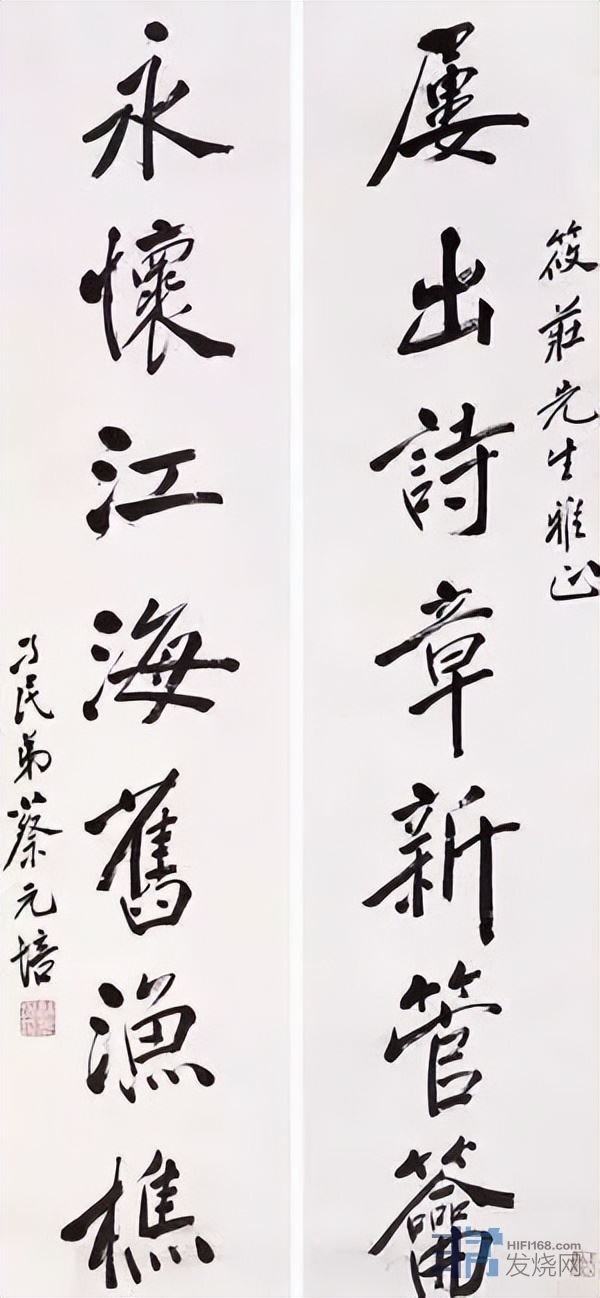 筱莊先生雅正
屢出詩章新管籥
永懷江海舊漁樵
孑民弟蔡元培
HIFI168.com
发烧网